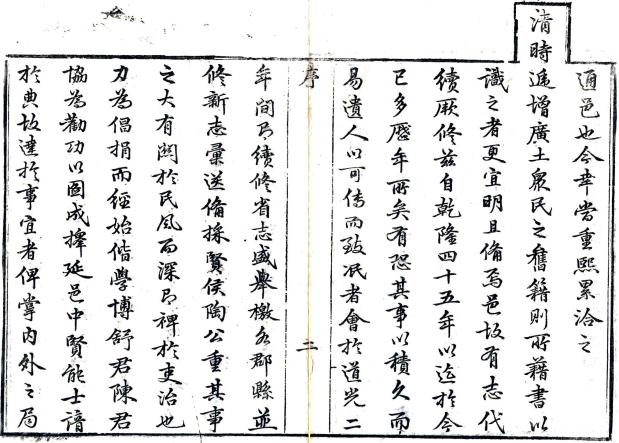 通邑也今幸當重熙累洽之
清時遞增廣土衆民之舊籍則所藉書以
識之者更宜明且備焉邑故有志代
續厥修茲自乾隆四十五年以迄於今
已多歷年所矣有恐其事以積久而
易遺人以可傳而致泯者會於道光二
序 二
年間有續修省志盛舉檄各郡縣並
修新志彙送備採賢侯陶公重其事
之大有關於民風而深有裨於吏治也
力為倡捐而經始偕學博舒君陳君
協為勸功以圖成擇延邑中賢能士諳
於典故達於事宜者俾掌內外之局